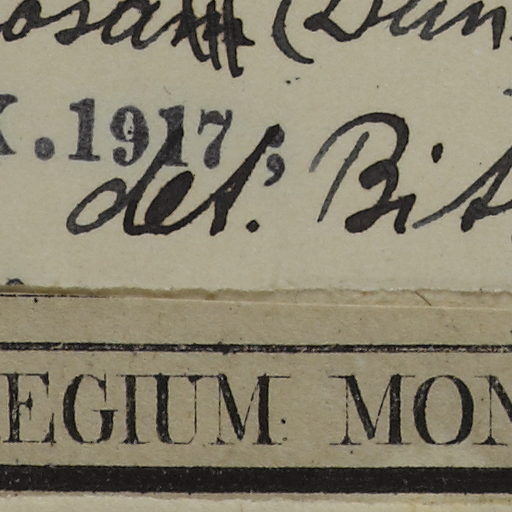 osa (Dun
X.1917;
det. Bit
EGIUM MON